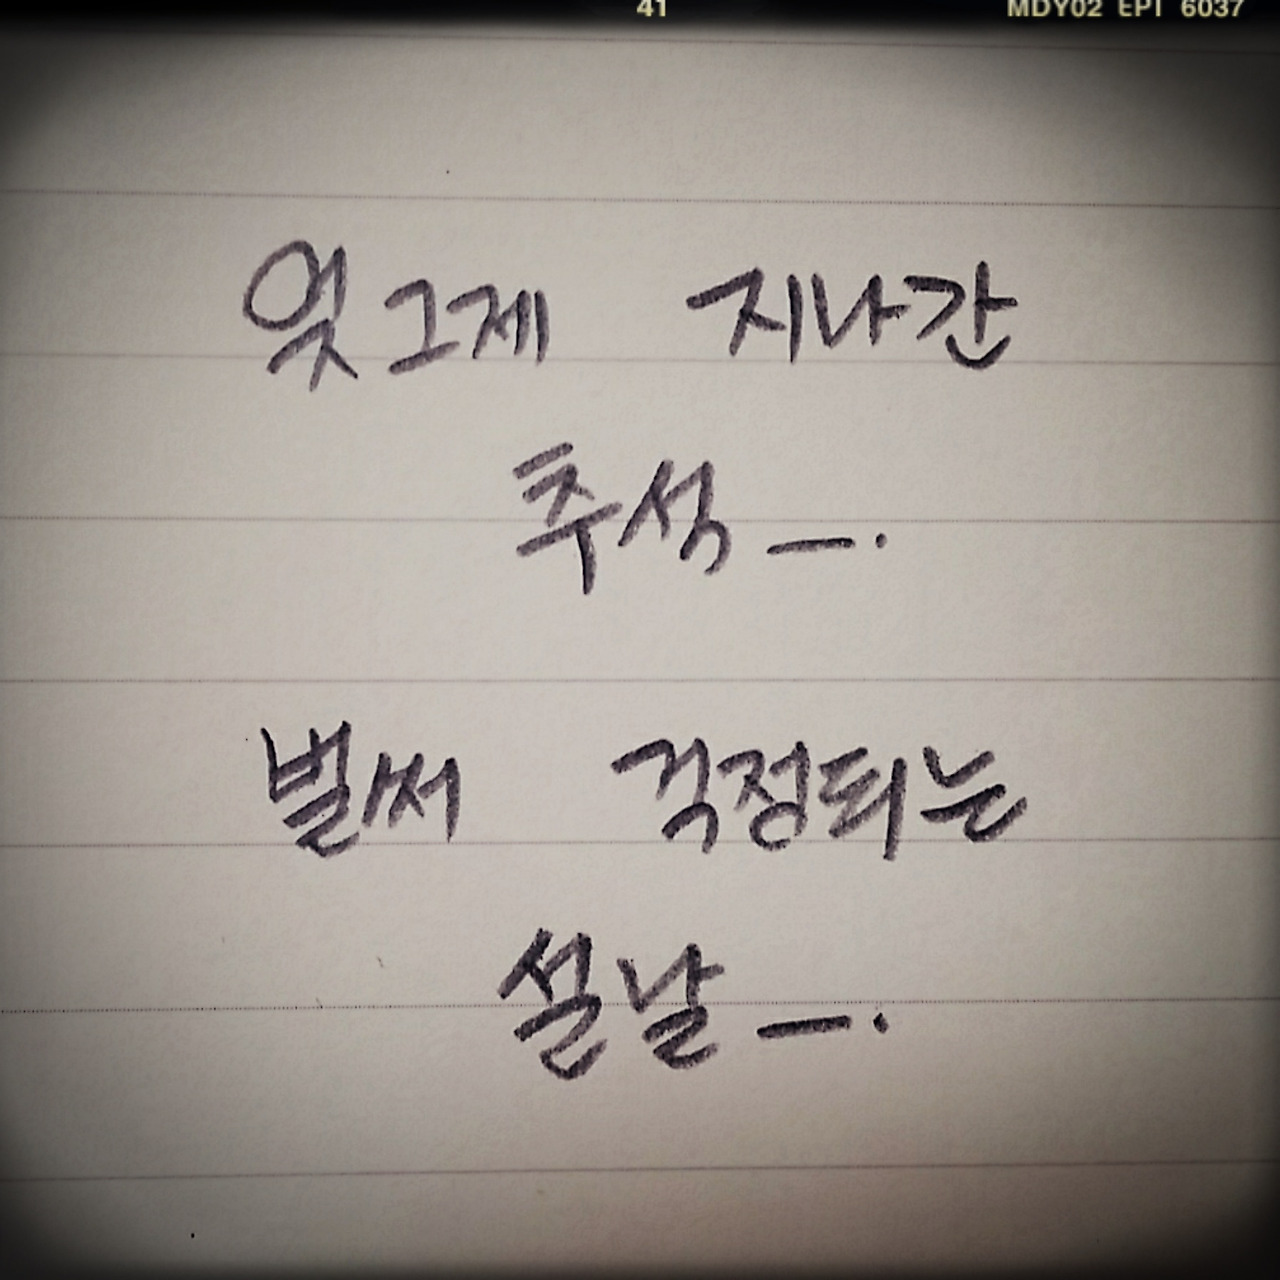 41 MDY02 EPT 6037
엊그제 지나간
추석ㅡ.
벌써 걱정되는
설날ㅡ.